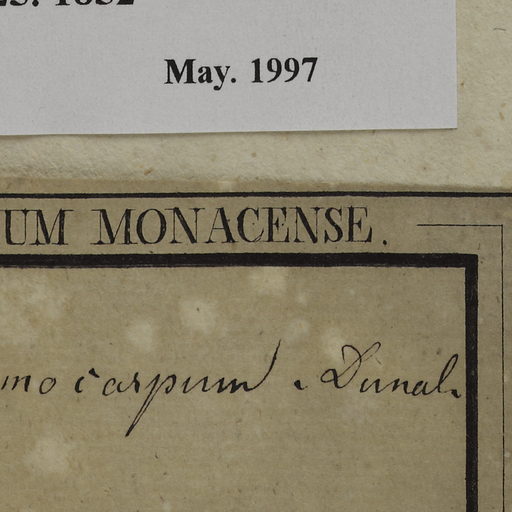 May. 1997
UM MONACENSE.
mocarpum. Dunal.